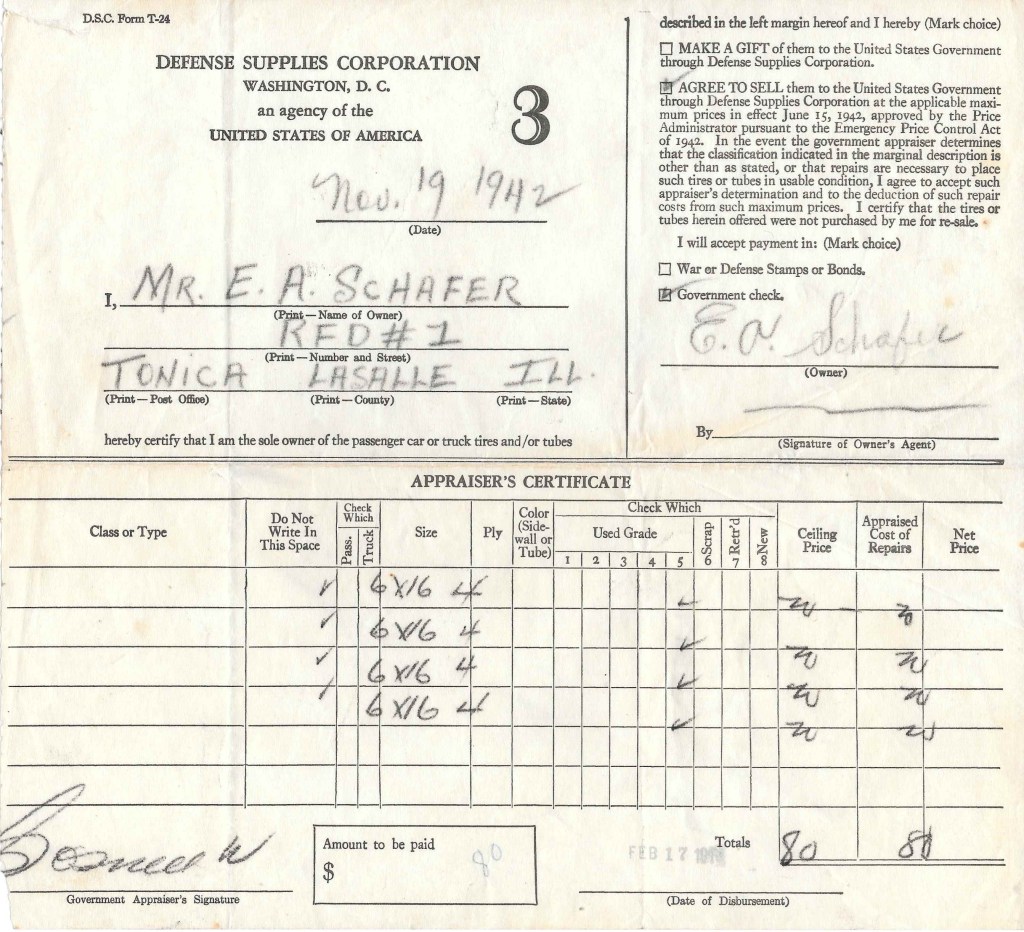 D.S.C. Form T-24
DEFENSE SUPPLIES CORPORATION
WASHINGTON, D. C.
an agency of the
UNITED STATES OF AMERICA
3
Nov. 19 1942
(Date)
I, MR. E. A. SCHAFER
(Print—Name of Owner)
RFD # 1
(Print—Number and Street)
TONICA LASALLE ILL.
(Print—Post Office) (Print—County) (Print—State)
hereby certify that I am the sole owner of the passenger car or truck tires and/or tubes
described in the left margin hereof and I hereby (Mark choice)
MAKE A GIFT of them to the United States Government
through Defense Supplies Corporation.
AGREE TO SELL them to the United States Government
through Defense Supplies Corporation at the applicable maxi-
mum prices in effect June 15, 1942, approved by the Price
Administrator pursuant to the Emergency Price Control Act
of 1942. In the event the government appraiser determines
that the classification indicated in the marginal description is
other than as stated, or that repairs are necessary to place
such tires or tubes in usable condition, I agree to accept such
appraiser's determination and to the deduction of such repair
costs from such maximum prices. I certify that the tires or
tubes herein offered were not purchased by me for re-sale.
I will accept payment in: (Mark choice)
War or Defense Stamps or Bonds.
Government check.
E. A. Schafer
(Owner)
By
(Signature of Owner's Agent)
APPRAISER'S CERTIFICATE
Class or Type Do Not Write In This Space Check Which Pass. Truck Size Ply Color (Side-wall or Tube) Check Which Used Grade 1 2 3 4 5 6 Scrap 7 Retr'd 8 New Ceiling Price Appraised Cost of Repairs Net Price
6X16 4
6X16 4
6X16 4
6X16 4
Totals 80 80
Amount to be paid
$ 80
FEB 17
Government Appraiser's Signature
(Date of Disbursement)